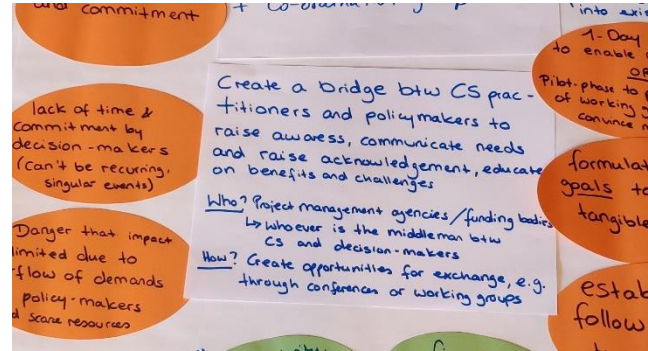 and commitment
+ Co-
into
lack of time &
commitment by
decision-makers
(Can't be recurring,
singular events)
Danger that impact
limited due to
flow of demands
policy-makers
scarce resources
Create a bridge btw CS prac-
titioners and policymakers to
raise awaress, communicate needs
and raise acknowledgement, educate
on benefits and challenges
Who? Project management agencies/funding bodies
↳ whoever is the middleman btw
CS and decision-makers
How? Create opportunities for exchange, e.g.
through conferences or working groups
1-Day
to enable
OR
Pilot-phase to
of working
convince
formulat
goals to
tangible
estab
follow